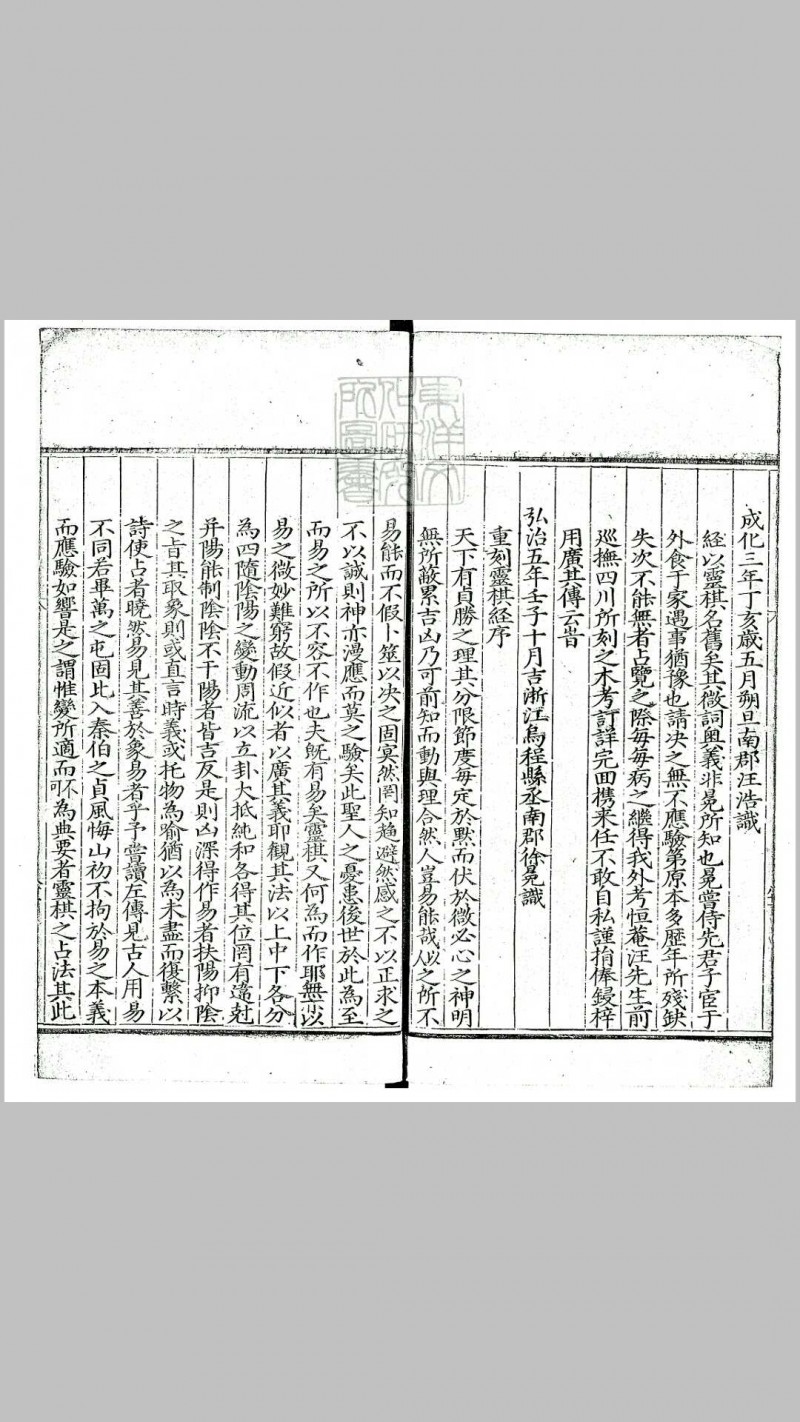 成化三年丁亥歲五月朔旦南郡汪浩識
経以靈棋名舊矣其微詞奧義非冕所知也冕嘗侍先君子宦于
外食于家遇事猶豫也請决之無不應驗第原本多歷年所殘缺
失次不能無者占覽之際每每病之繼得我外考恒菴汪先生前
廵撫四川所刻之木考訂詳完囬携来任不敢自私謹捐俸鋟梓
用廣其傳云旹
弘治五年壬子十月吉浙江烏程縣丞南郡徐冕識
重刻靈棋経序
天下有貞勝之理其分限節度每定於默而伏於微必心之神明
無所蔽累吉凶乃可前知而動與理合然人豈易能哉人以之所不
易能而不假卜筮以决之固冥然罔知趨避然感之不以正求之
不以誠則神亦漫應而莫之驗矣此聖人之憂患後世於此為至
而易之所以不容不作也夫旣有易矣靈棋又何為而作耶無以
易之微妙難窮故假近似者以廣其義耶観其法以上中下各分
為四隨陰陽之變動周流以立卦大抵純和各得其位罔有違尅
并陽能制陰陰不干陽者皆吉反是則凶深得作易者扶陽抑陰
之旨其取象則或直言時義或托物為喻猶以為未盡而復繫以
詩使占者曉然易見其善於象易者乎予嘗讀左傳見古人用易
不同若畢萬之屯固比入秦伯之貞風悔山初不拘於易之本義
而應驗如響是之謂惟變所適而不為典要者靈棋之占法其此
東洋文化研究所圖書